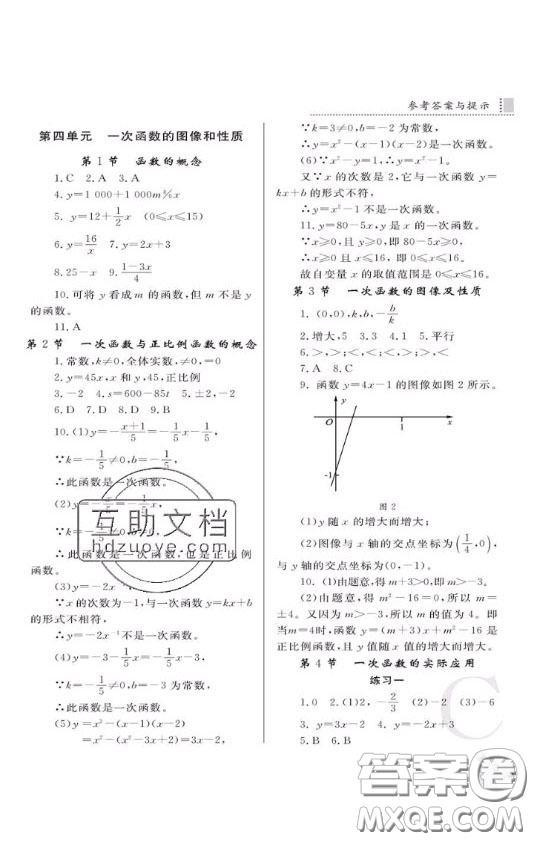 参考答案与提示
第四单元 一次函数的图像和性质
第1节 函数的概念
1.C 2.A 3.A
4.y=1 000+1 000m%x
5.y=12+1/2x (0≤x≤15)
6.y=16/x 7.y=2x+3
8.25-x 9.(1-3x)/4
10.可将y看成m的函数,但m不是y
的函数。
11.A
第2节 一次函数与正比例函数的概念
1.常数,k≠0,全体实数,≠0,=0
2.y=45x,x和y,45,正比例
3.-2 4.s=600-85t 5.±2,-2
6.D 7.D 8.D 9.B
10.(1)y=-(x+1)/5=-1/5x-1/5,
∵k=-1/5≠0,b=-1/5,
∴此函数是一次函数。
(2)y=-x/5=-1/5x,
∵k=-1/5
∴此函数是一次函数,也是正比例
函数。
(3)y=-2x⁻¹,
∵x的次数为-1,与一次函数y=kx+b
的形式不相符,
∴y=-2x⁻¹不是一次函数。
(4)y=-3-1/5x=-1/5x-3,
∵k=-1/5≠0,b=-3为常数,
∴此函数是一次函数。
(5)y=x²-(x-1)(x-2)
=x²-(x²-3x+2)=3x-2,
∵k=3≠0,b=-2为常数,
∴y=x²-(x-1)(x-2)是一次函数。
(6)∵x²-y=1,∴y=x²-1。
又∵x的次数是2,它与一次函数y=
kx+b的形式不符,
∴y=x²-1不是一次函数。
11.y=80-5x,y是x的一次函数。
∵x≥0,且y≥0,即80-5x≥0,
∴x≥0且x≤16,即0≤x≤16。
故自变量x的取值范围是0≤x≤16。
第3节 一次函数的图像及性质
1.(0,0),k,b,-b/k
2.增大,5 3.3 4.1 5.平行
6.>,>;>,<;<,>;<,<
7.A 8.C
9.函数y=4x-1的图像如图2所示。
y
O
1
x
-1
图2
(1)y随x的增大而增大;
(2)图像与x轴的交点坐标为(1/4,0),
与y轴的交点坐标为(0,-1)。
10.(1)由题意,得m+3>0,即m>-3。
(2)由题意,得m²-16=0,所以m=
±4。又因为m>-3,所以m的值为4。即
当m=4时,函数y=(m+3)x+m²-16是
正比例函数且y值随x值的增大而增大。
第4节 一次函数的实际应用
练习一
1.0 2.(1)2,-2/3 (2)-2 (3)-6
3.y=3x-2 4.y=-2x+3
5.B 6.B
互助文档
hdzuoye.com
C
答案卷
MXQE.COM